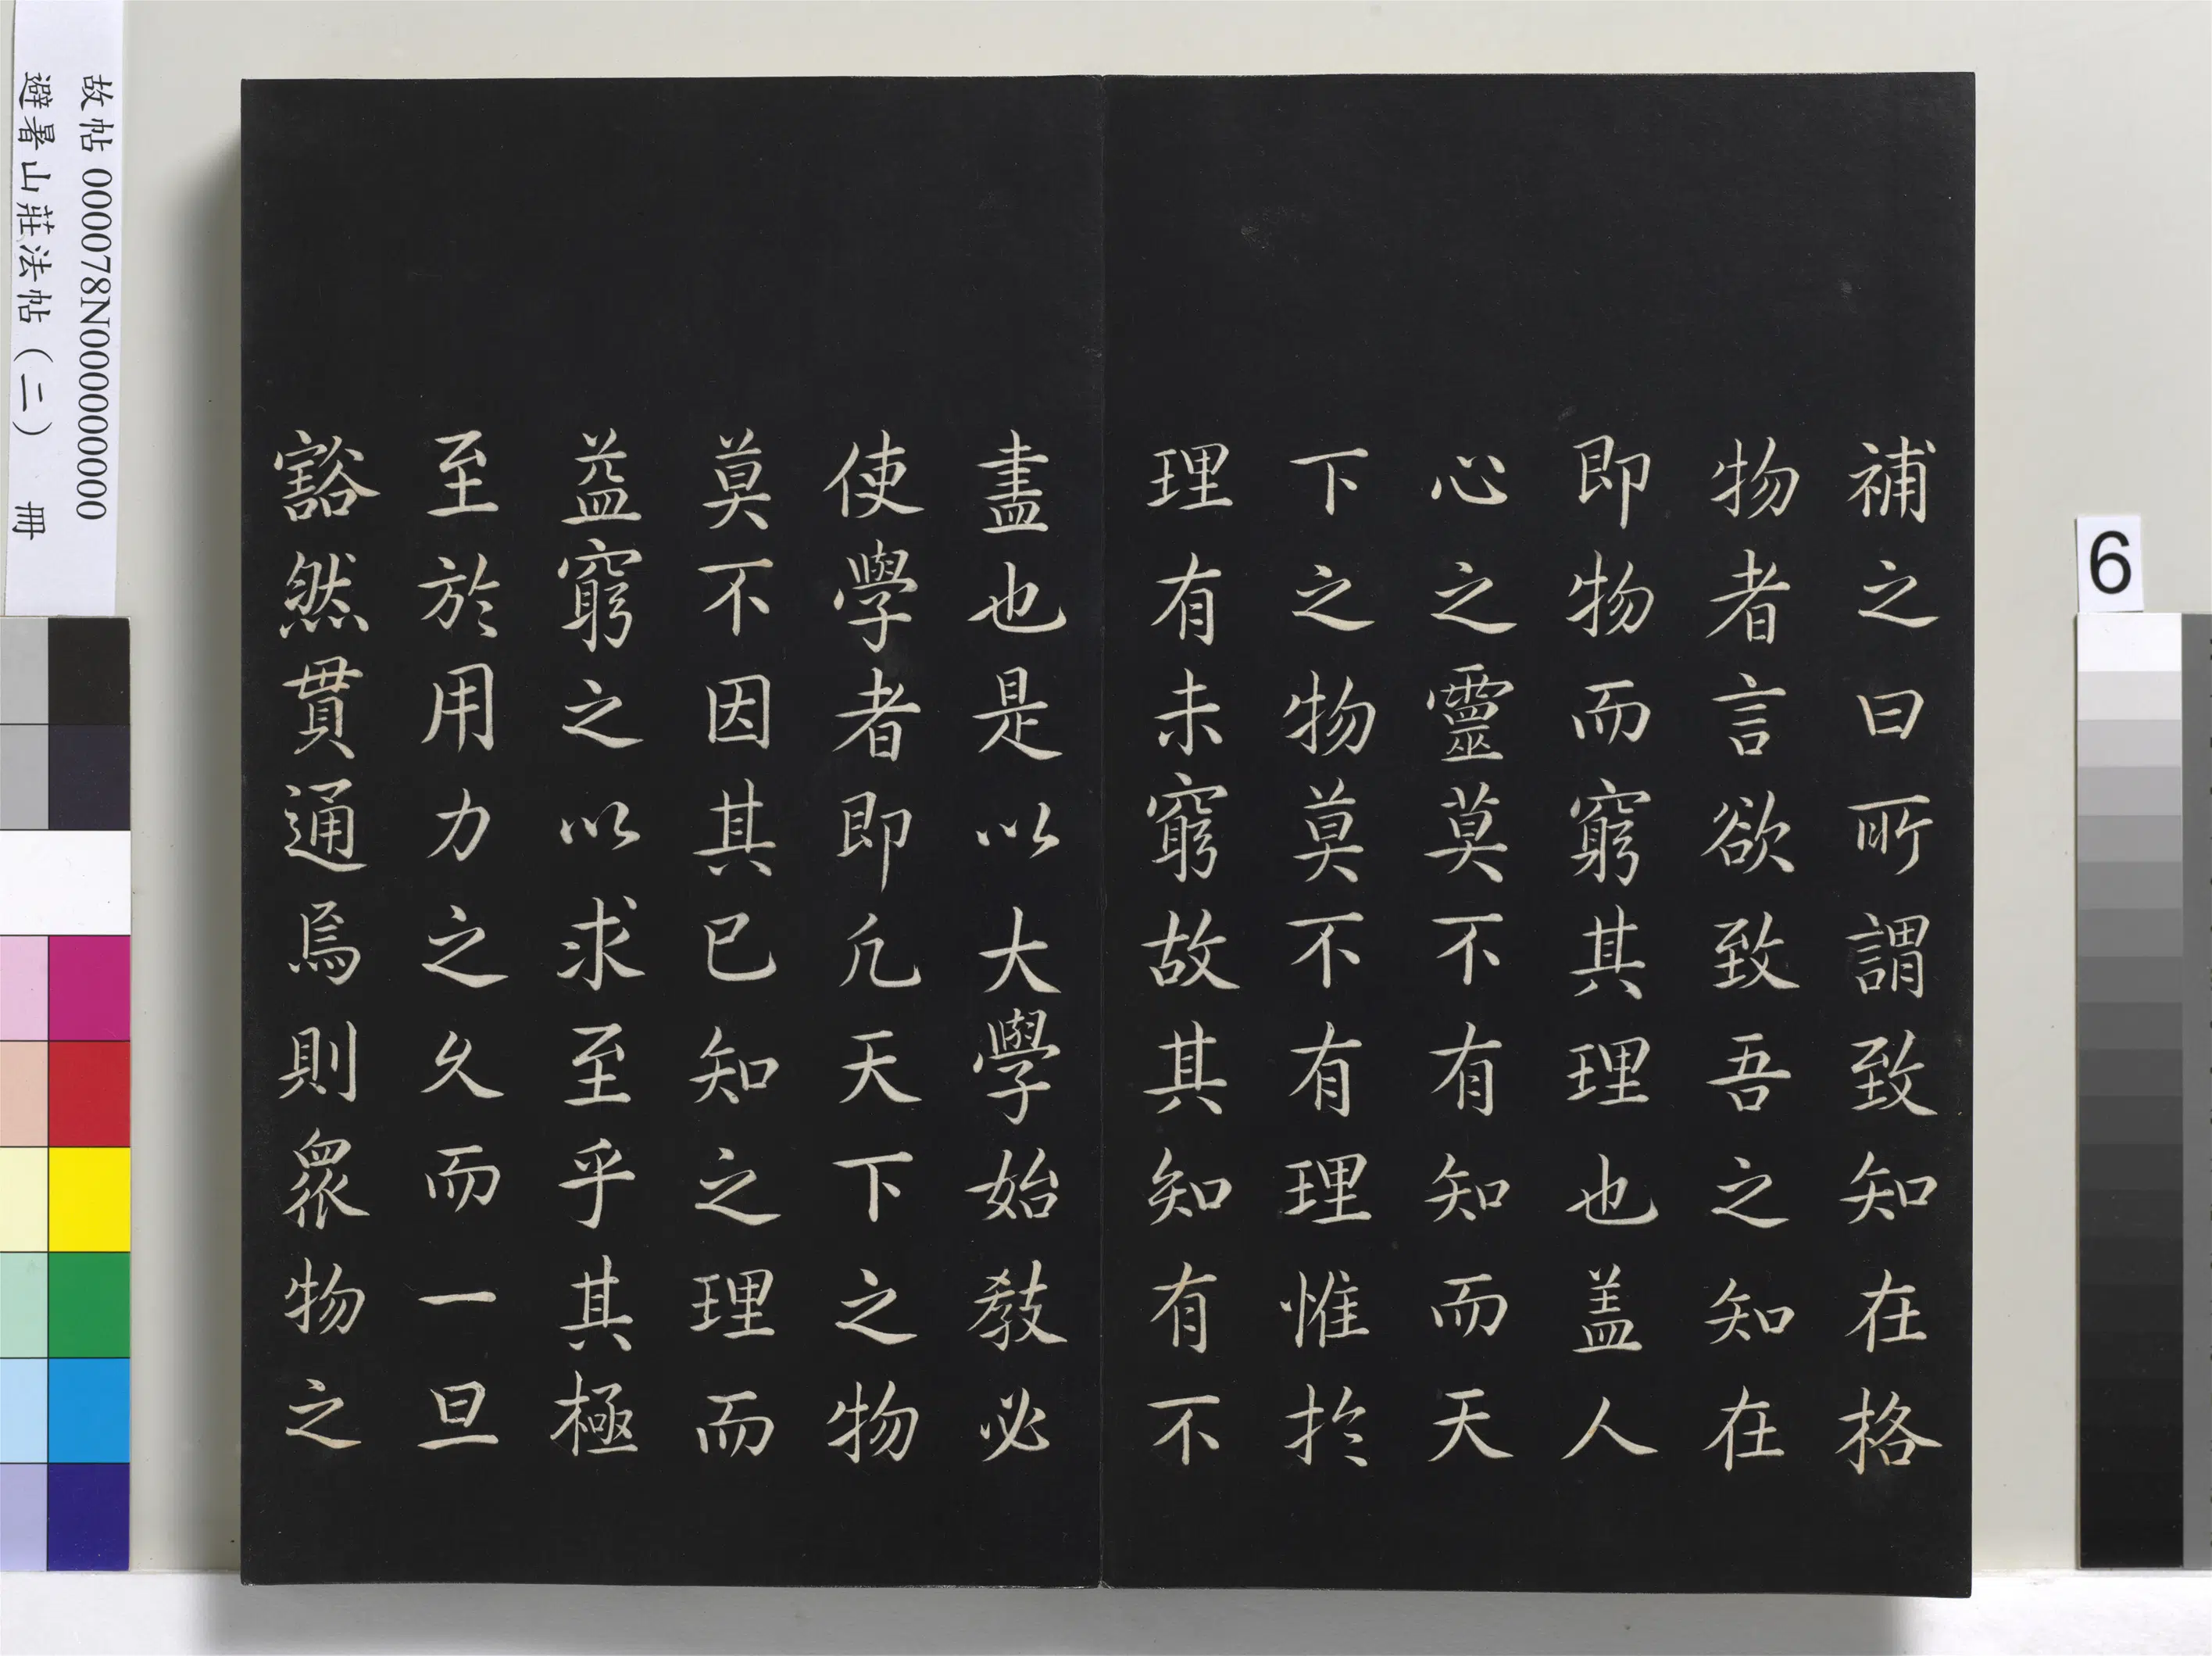 補之曰所謂致知在格
物者言欲致吾之知在
即物而窮其理也盖人
心之靈莫不有知而天
下之物莫不有理惟於
理有未窮故其知有不
盡也是以大學始教必
使學者即凡天下之物
莫不因其已知之理而
益窮之以求至乎其極
至於用力之久而一旦
豁然貫通焉則衆物之
故帖 000078N000000000
避暑山莊法帖（二） 冊
6